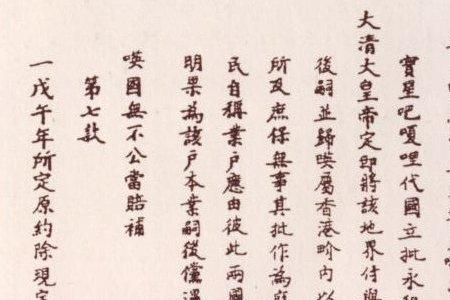 寶星吧嗄哩代國立批永租
大清大皇帝定即將該地界付與
後嗣並歸𠸄屬香港畍內以
所及庶保無事其批作為廢
民自稱業户應由彼此兩國
明果為該户本業嗣後儻遇
𠸄國無不公當賠補
第七款
一戊午年所定原約除現定